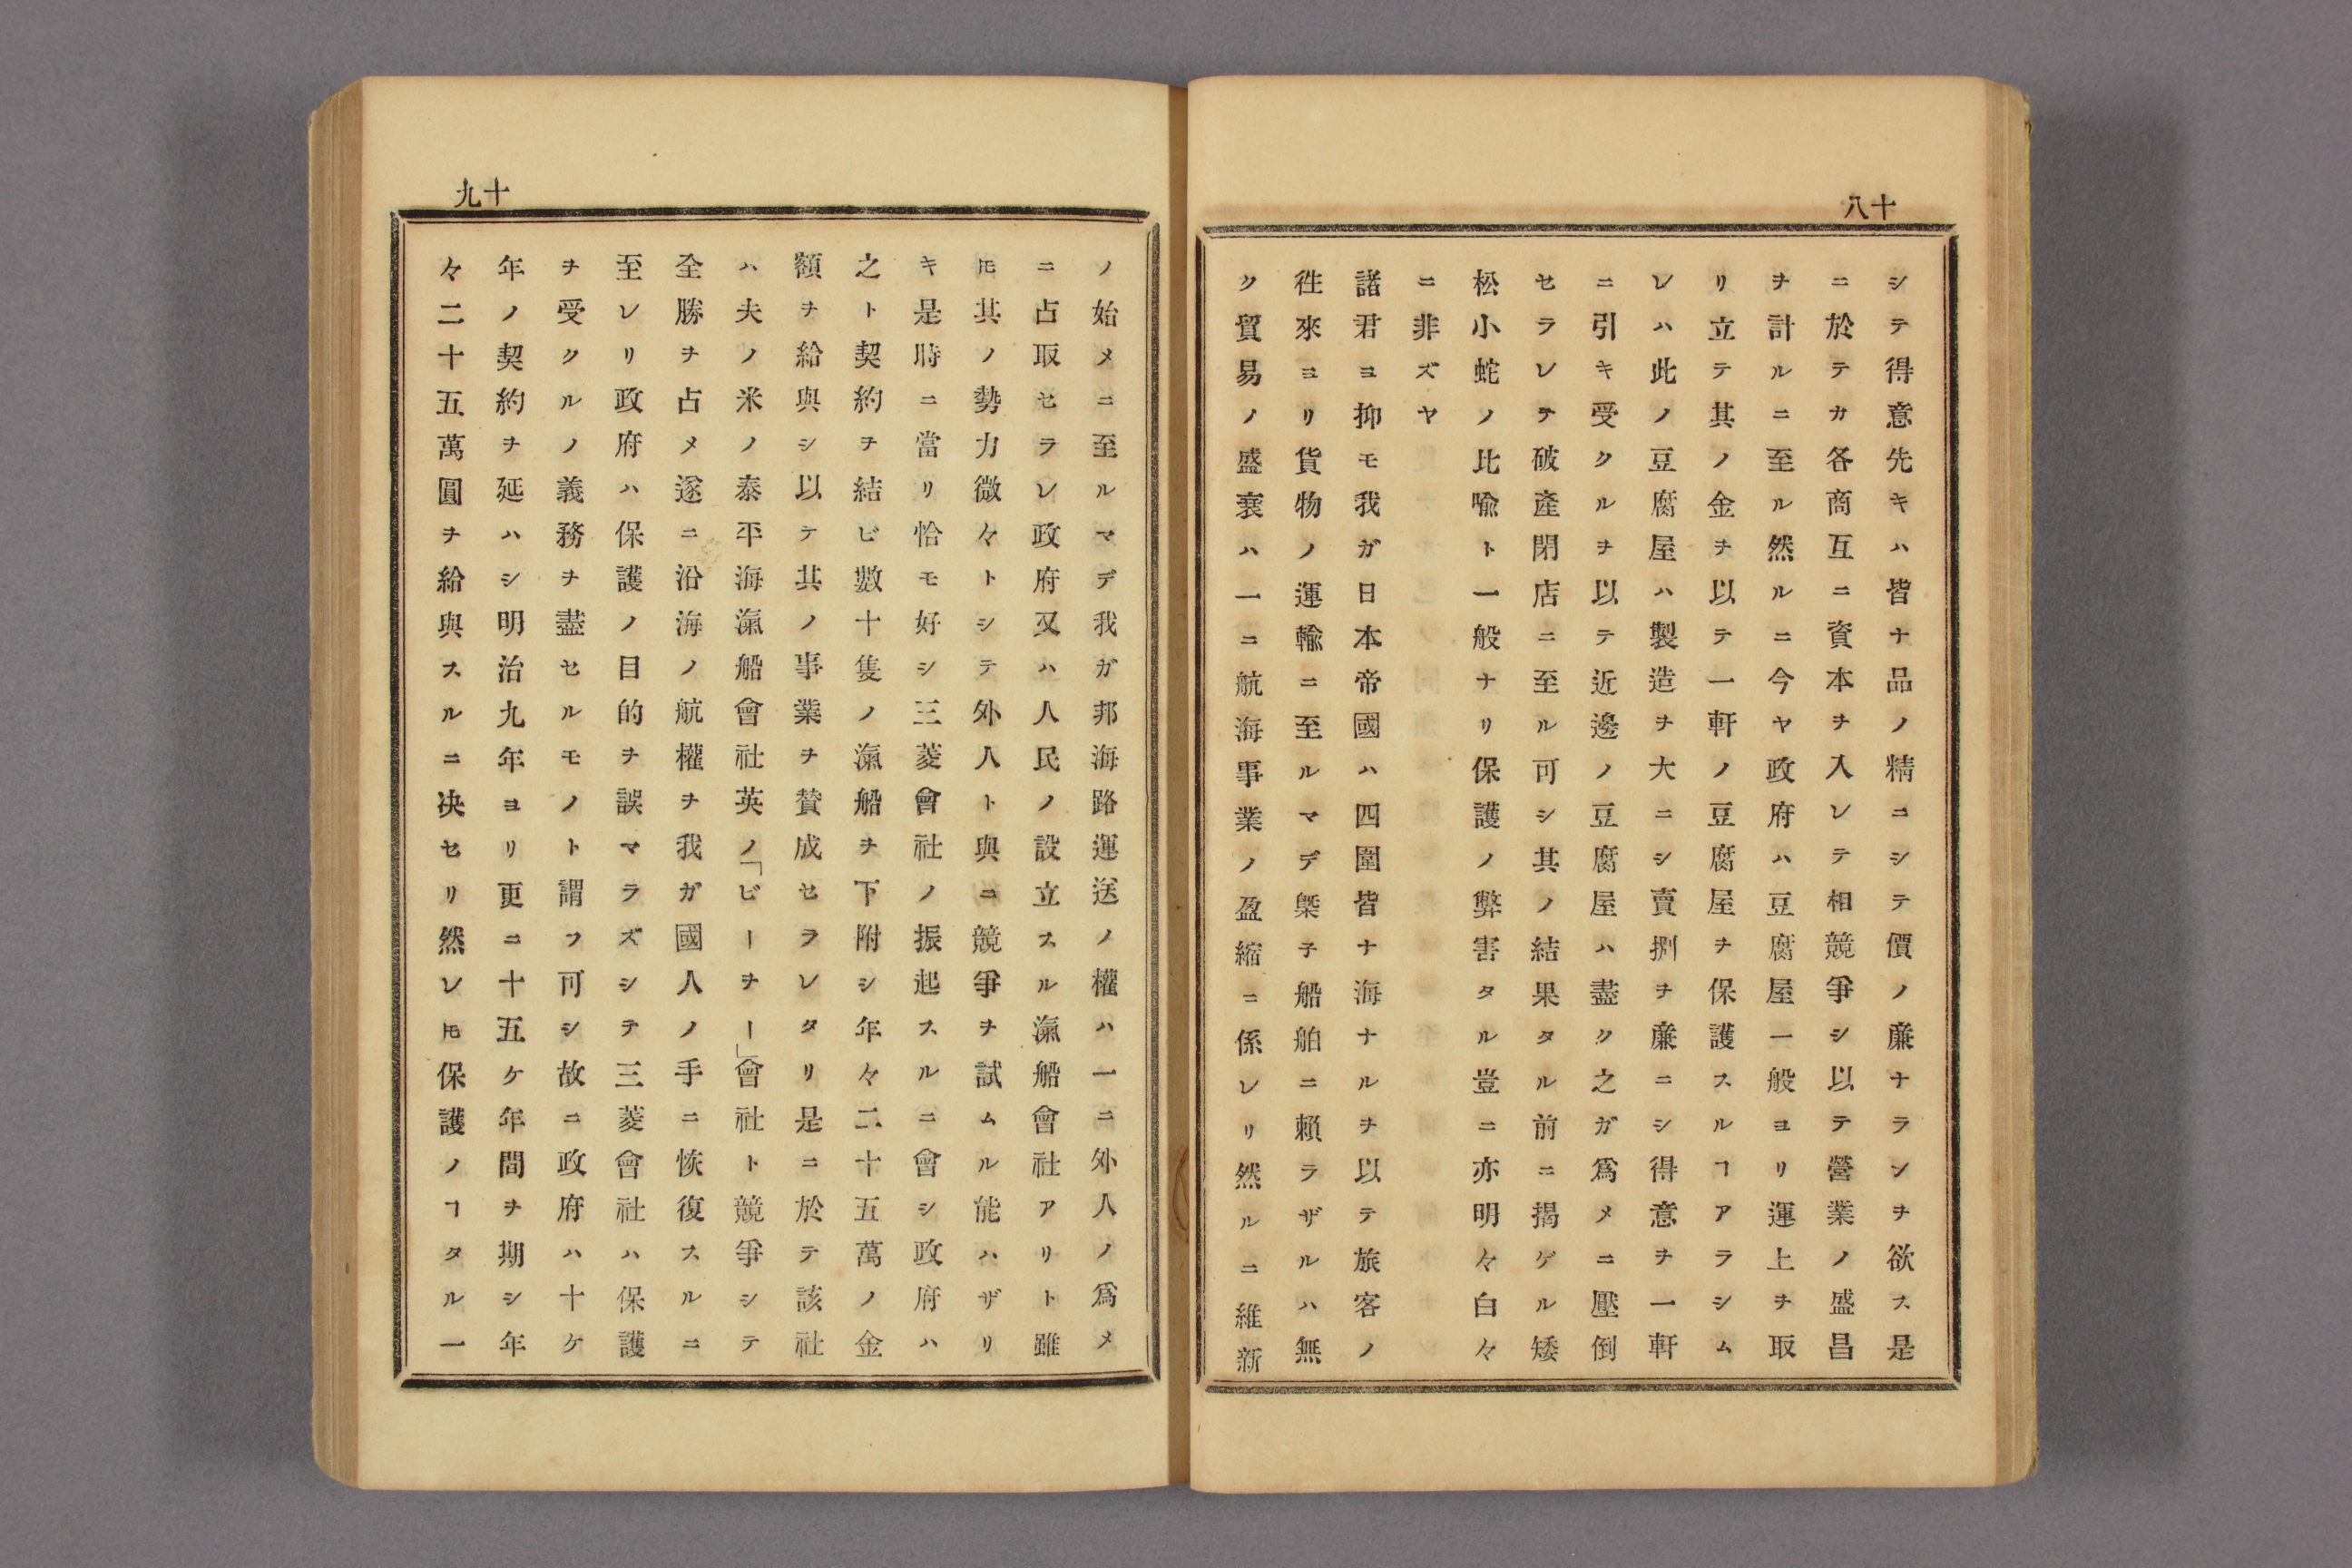 十八
シテ得意先キハ皆ナ品ノ精ニシテ價ノ廉ナランヲ欲ス是
ニ於テカ各商互ニ資本ヲ入レテ相競爭シ以テ營業ノ盛昌
ヲ計ルニ至ル然ルニ今ヤ政府ハ豆腐屋一般ヨリ運上ヲ取
リ立テ其ノ金ヲ以テ一軒ノ豆腐屋ヲ保護スルヿアラシム
レハ此ノ豆腐屋ハ製造ヲ大ニシ賣捌ヲ廉ニシ得意ヲ一軒
ニ引キ受クルヲ以テ近邊ノ豆腐屋ハ盡ク之ガ爲メニ壓倒
セラレテ破產閉店ニ至ル可シ其ノ結果タル前ニ揭ゲル矮
松小蛇ノ比喩ト一般ナリ保護ノ弊害タル豈ニ亦明々白々
ニ非ズヤ
諸君ヨ抑モ我ガ日本帝國ハ四圍皆ナ海ナルヲ以テ旅客ノ
徃來ヨリ貨物ノ運輸ニ至ルマデ槩子船舶ニ賴ラザルハ無
ク貿易ノ盛衰ハ一ニ航海事業ノ盈縮ニ係レリ然ルニ維新
十九
ノ始メニ至ルマデ我ガ邦海路運送ノ權ハ一ニ外人ノ爲メ
ニ占取セラレ政府又ハ人民ノ設立スル滊船會社アリト雖
𪜈其ノ勢力微々トシテ外人ト與ニ競爭ヲ試ムル能ハザリ
キ是時ニ當リ恰モ好シ三菱會社ノ振起スルニ會シ政府ハ
之ト契約ヲ結ビ數十隻ノ滊船ヲ下附シ年々二十五萬ノ金
額ヲ給與シ以テ其ノ事業ヲ賛成セラレタリ是ニ於テ該社
ハ夫ノ米ノ泰平海滊船會社英ノ「ビーヲー」會社ト競爭シテ
全勝ヲ占メ遂ニ沿海ノ航權ヲ我ガ國人ノ手ニ恢復スルニ
至レリ政府ハ保護ノ目的ヲ誤マラズシテ三菱會社ハ保護
ヲ受クルノ義務ヲ盡セルモノト謂フ可シ故ニ政府ハ十ケ
年ノ契約ヲ延ハシ明治九年ヨリ更ニ十五ケ年間ヲ期シ年
々二十五萬圓ヲ給與スルニ决セリ然レ𪜈保護ノヿタル一